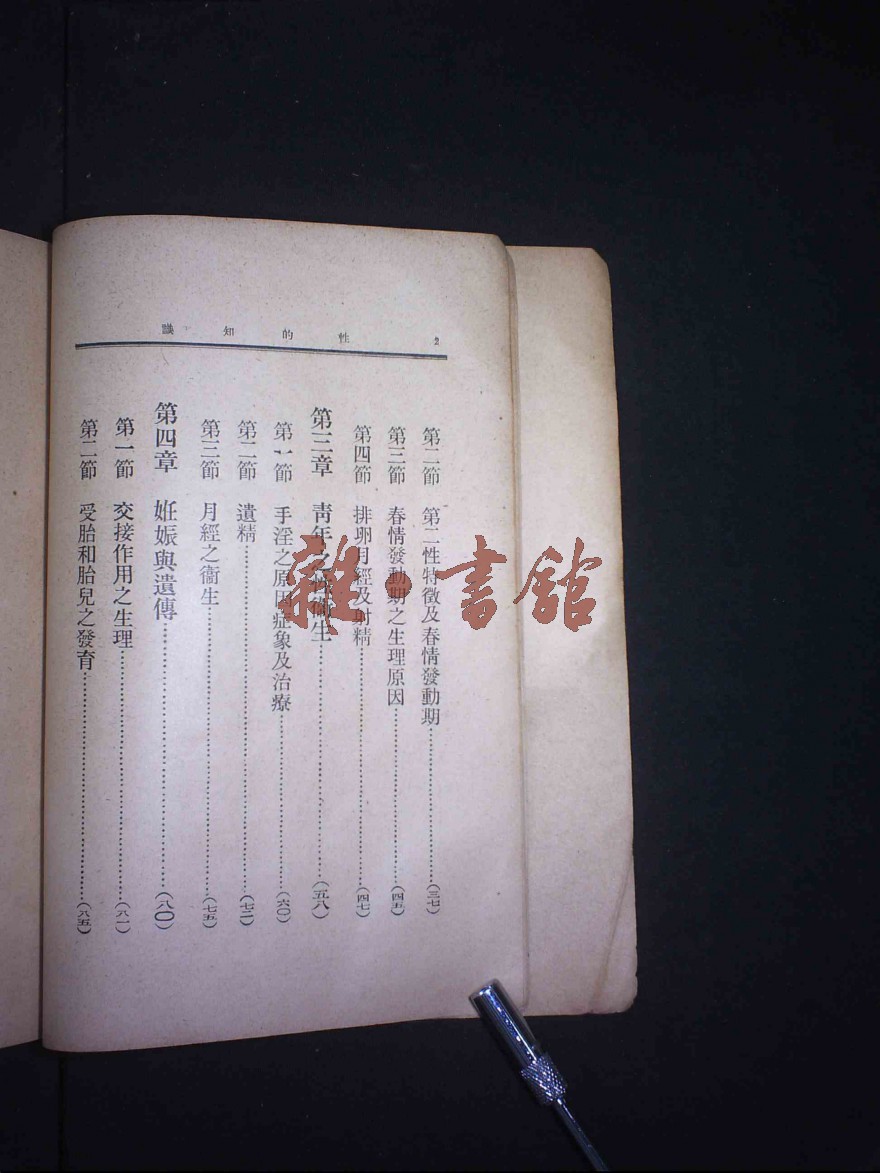 性的知識
2
第二節 第二性特徵及春情發動期……(三七)
第三節 春情發動期之生理原因……(四五)
第四節 排卵月經及射精……(四七)
第三章 靑年之性衞生……(五八)
第一節 手淫之原因症象及治療……(六〇)
第二節 遺精……(七二)
第三節 月經之衞生……(七五)
第四章 妊娠與遺傳……(八〇)
第一節 交接作用之生理……(八一)
第二節 受胎和胎兒之發育……(八五)
雜·書館